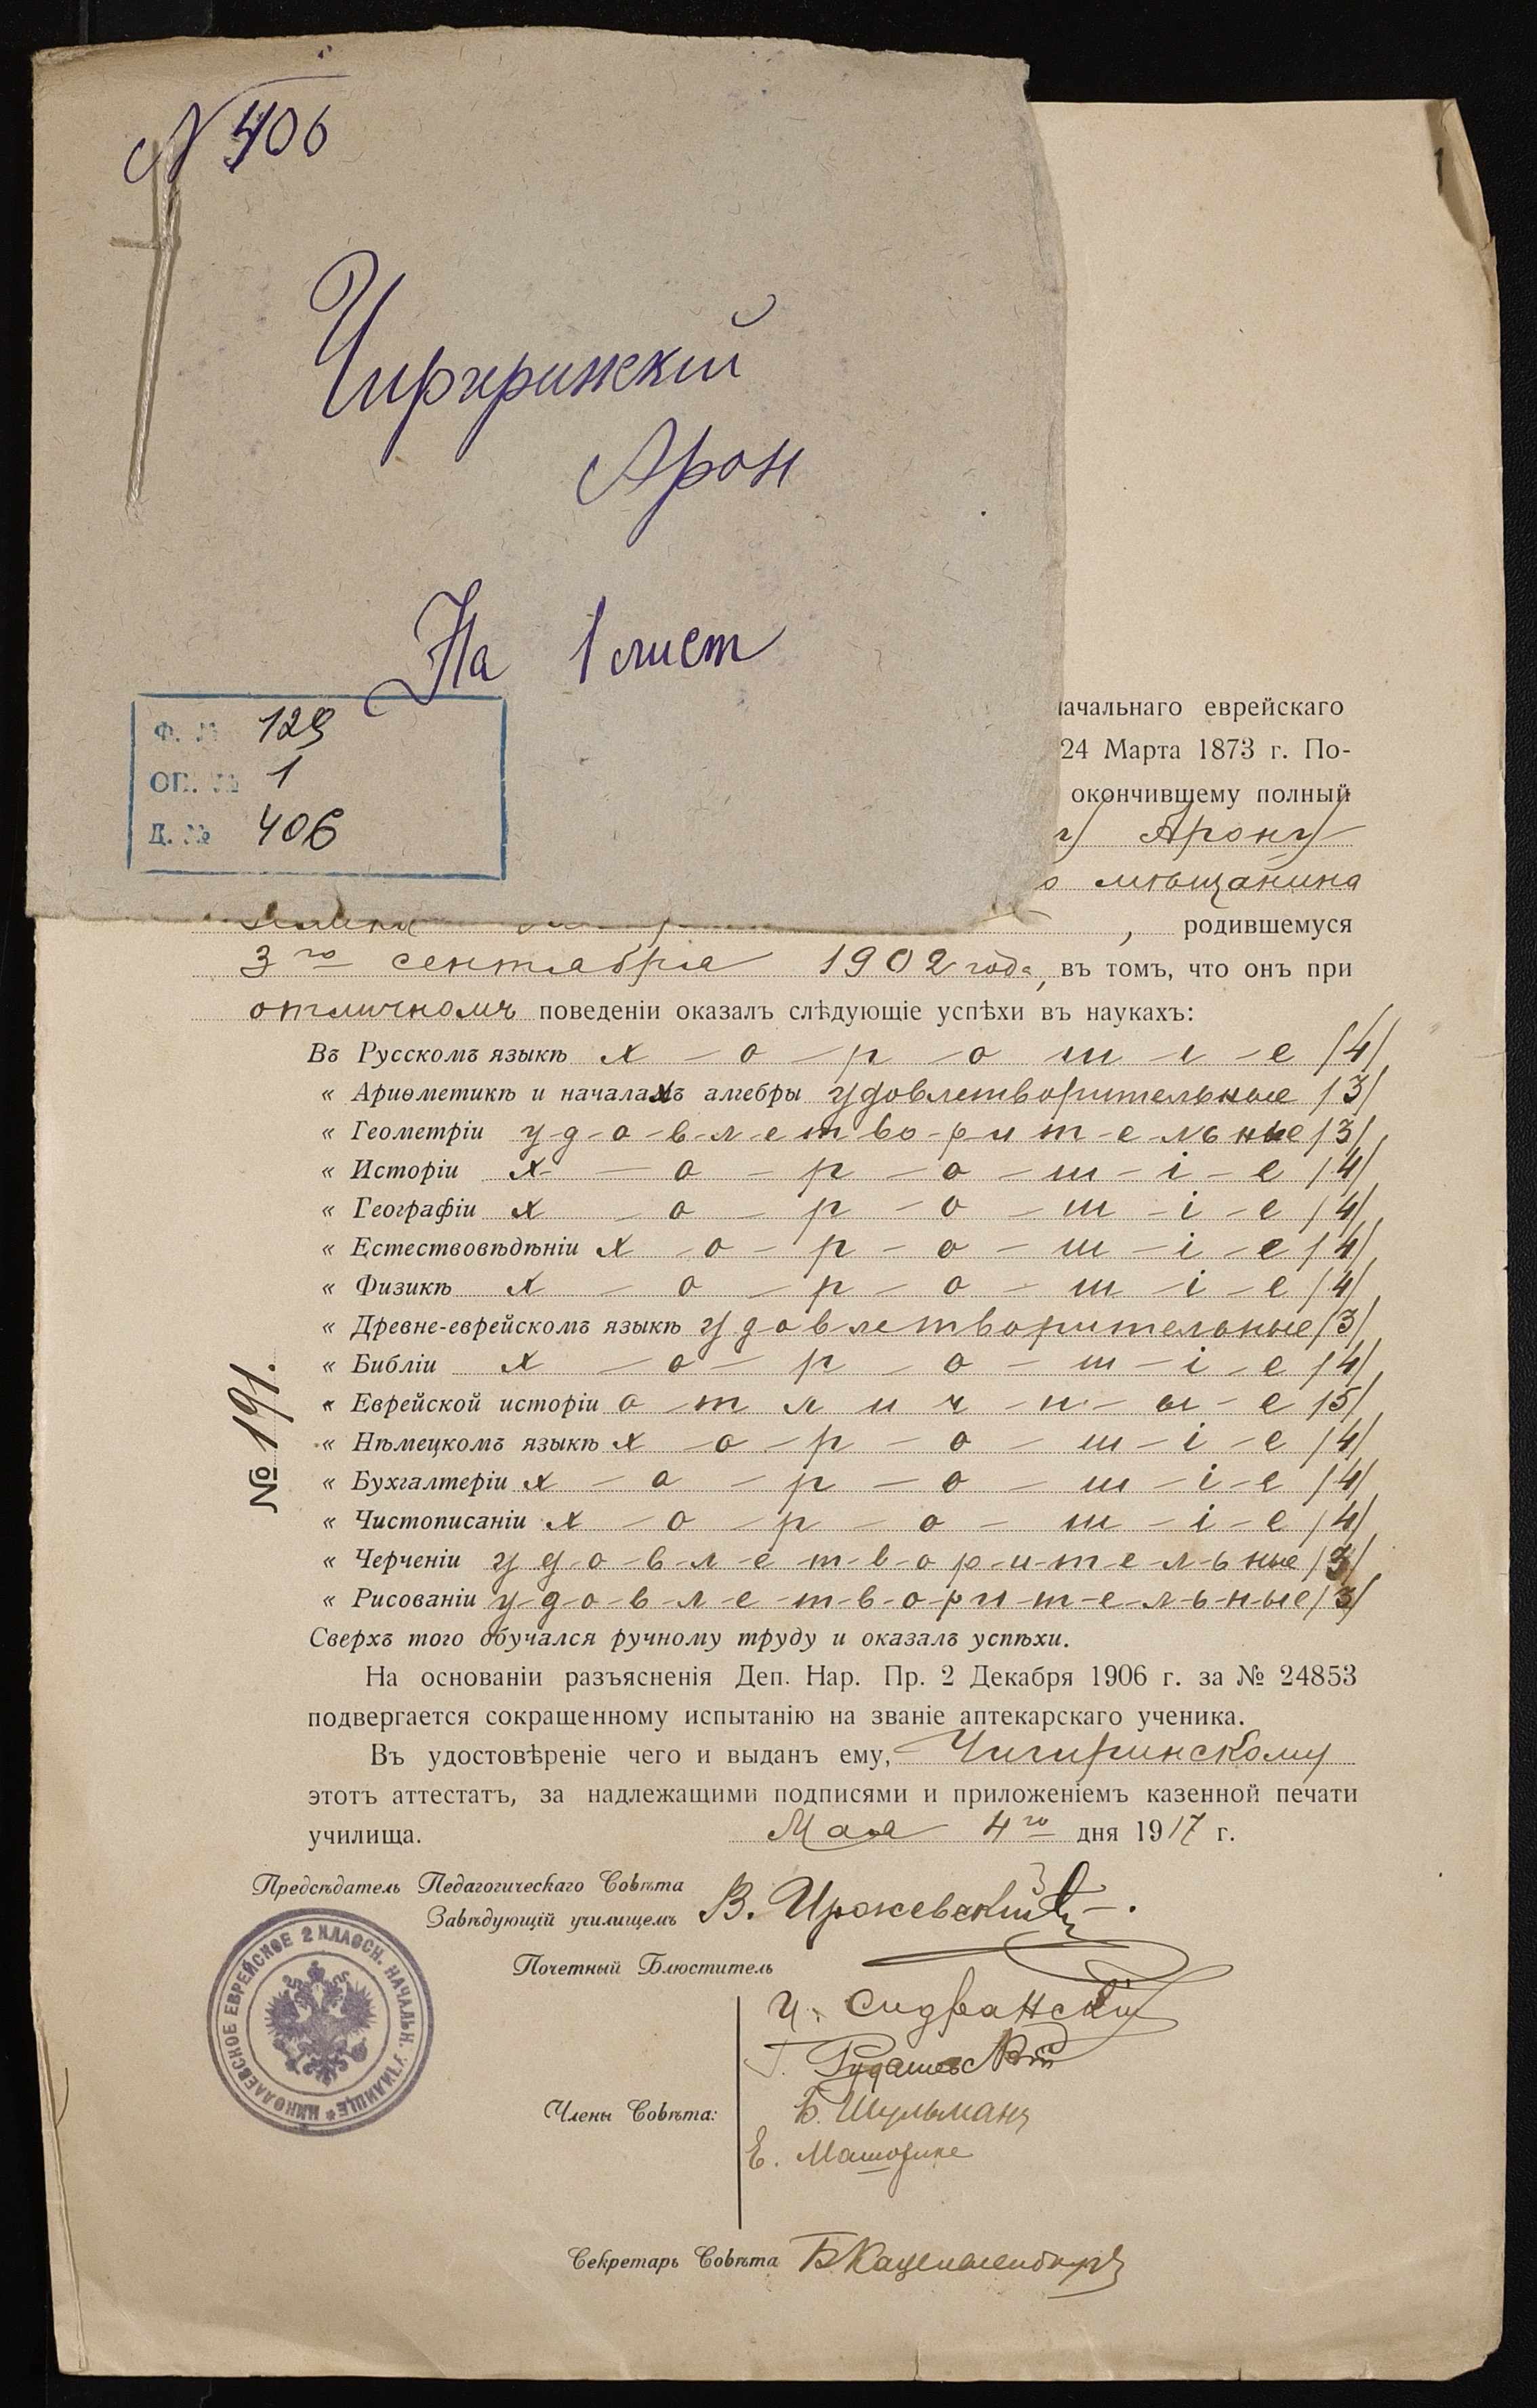 N 406
Чигиринский
Арон
На 1 лист
Ф. № 129
ОП. № 1
Д. № 406
1
начальнаго еврейскаго
24 Марта 1873 г. По-
окончившему полный
Арону
мѣщанина
, родившемуся
3го сентября 1902 года, въ томъ, что онъ при
отличномъ поведеніи оказалъ слѣдующіе успѣхи въ наукахъ:
Въ Русскомъ языкѣ х-о-р-о-ш-і-е /4/,
« Ариѳметикѣ и началахъ алгебры удовлетворительные /3/
« Геометріи у-д-о-в-л-е-т-во-р-и-т-е-льные /3/,
« Исторіи х-о-р-о-ш-і-е /4/,
« Географіи х-о-р-о-ш-і-е /4/,
« Естествовѣдѣніи х-о-р-о-ш-і-е /4/,
« Физикѣ х-о-р-о-ш-і-е /4/,
« Древне-еврейскомъ языкѣ удовлетворительные /3/,
« Библіи х-о-р-о-ш-і-е /4/,
« Еврейской исторіи о-т-л-и-ч-н-ы-е /5/,
« Нѣмецкомъ языкѣ х-о-р-о-ш-і-е /4/,
« Бухгалтеріи х-о-р-о-ш-і-е /4/,
« Чистописаніи х-о-р-о-ш-і-е /4/,
« Черченіи у-д-о-в-л-е-т-в-о-р-и-т-е-л-ь-ные /3/,
« Рисованіи у-д-о-в-л-е-т-в-о-р-и-т-е-л-ь-н-ые /3/
Сверхъ того обучался ручному труду и оказалъ успѣхи.
На основаніи разъясненія Деп. Нар. Пр. 2 Декабря 1906 г. за № 24853
подвергается сокращенному испытанію на званіе аптекарскаго ученика.
Въ удостовѣреніе чего и выданъ ему, Чигиринскому
этотъ аттестатъ, за надлежащими подписями и приложеніемъ казенной печати
училища. Мая 4го дня 1917 г.
№ 191.
Предсѣдатель Педагогическаго Совѣта
Завѣдующій училищемъ В.
Почетный Блюститель
Члены Совѣта:
Б. Шульманъ
Е.
Секретарь Совѣта Б.
НИКОЛАЕВСКОЕ ЕВРЕЙСКОЕ 2 КЛАССН. НАЧАЛЬН. УЧИЛИЩЕ *